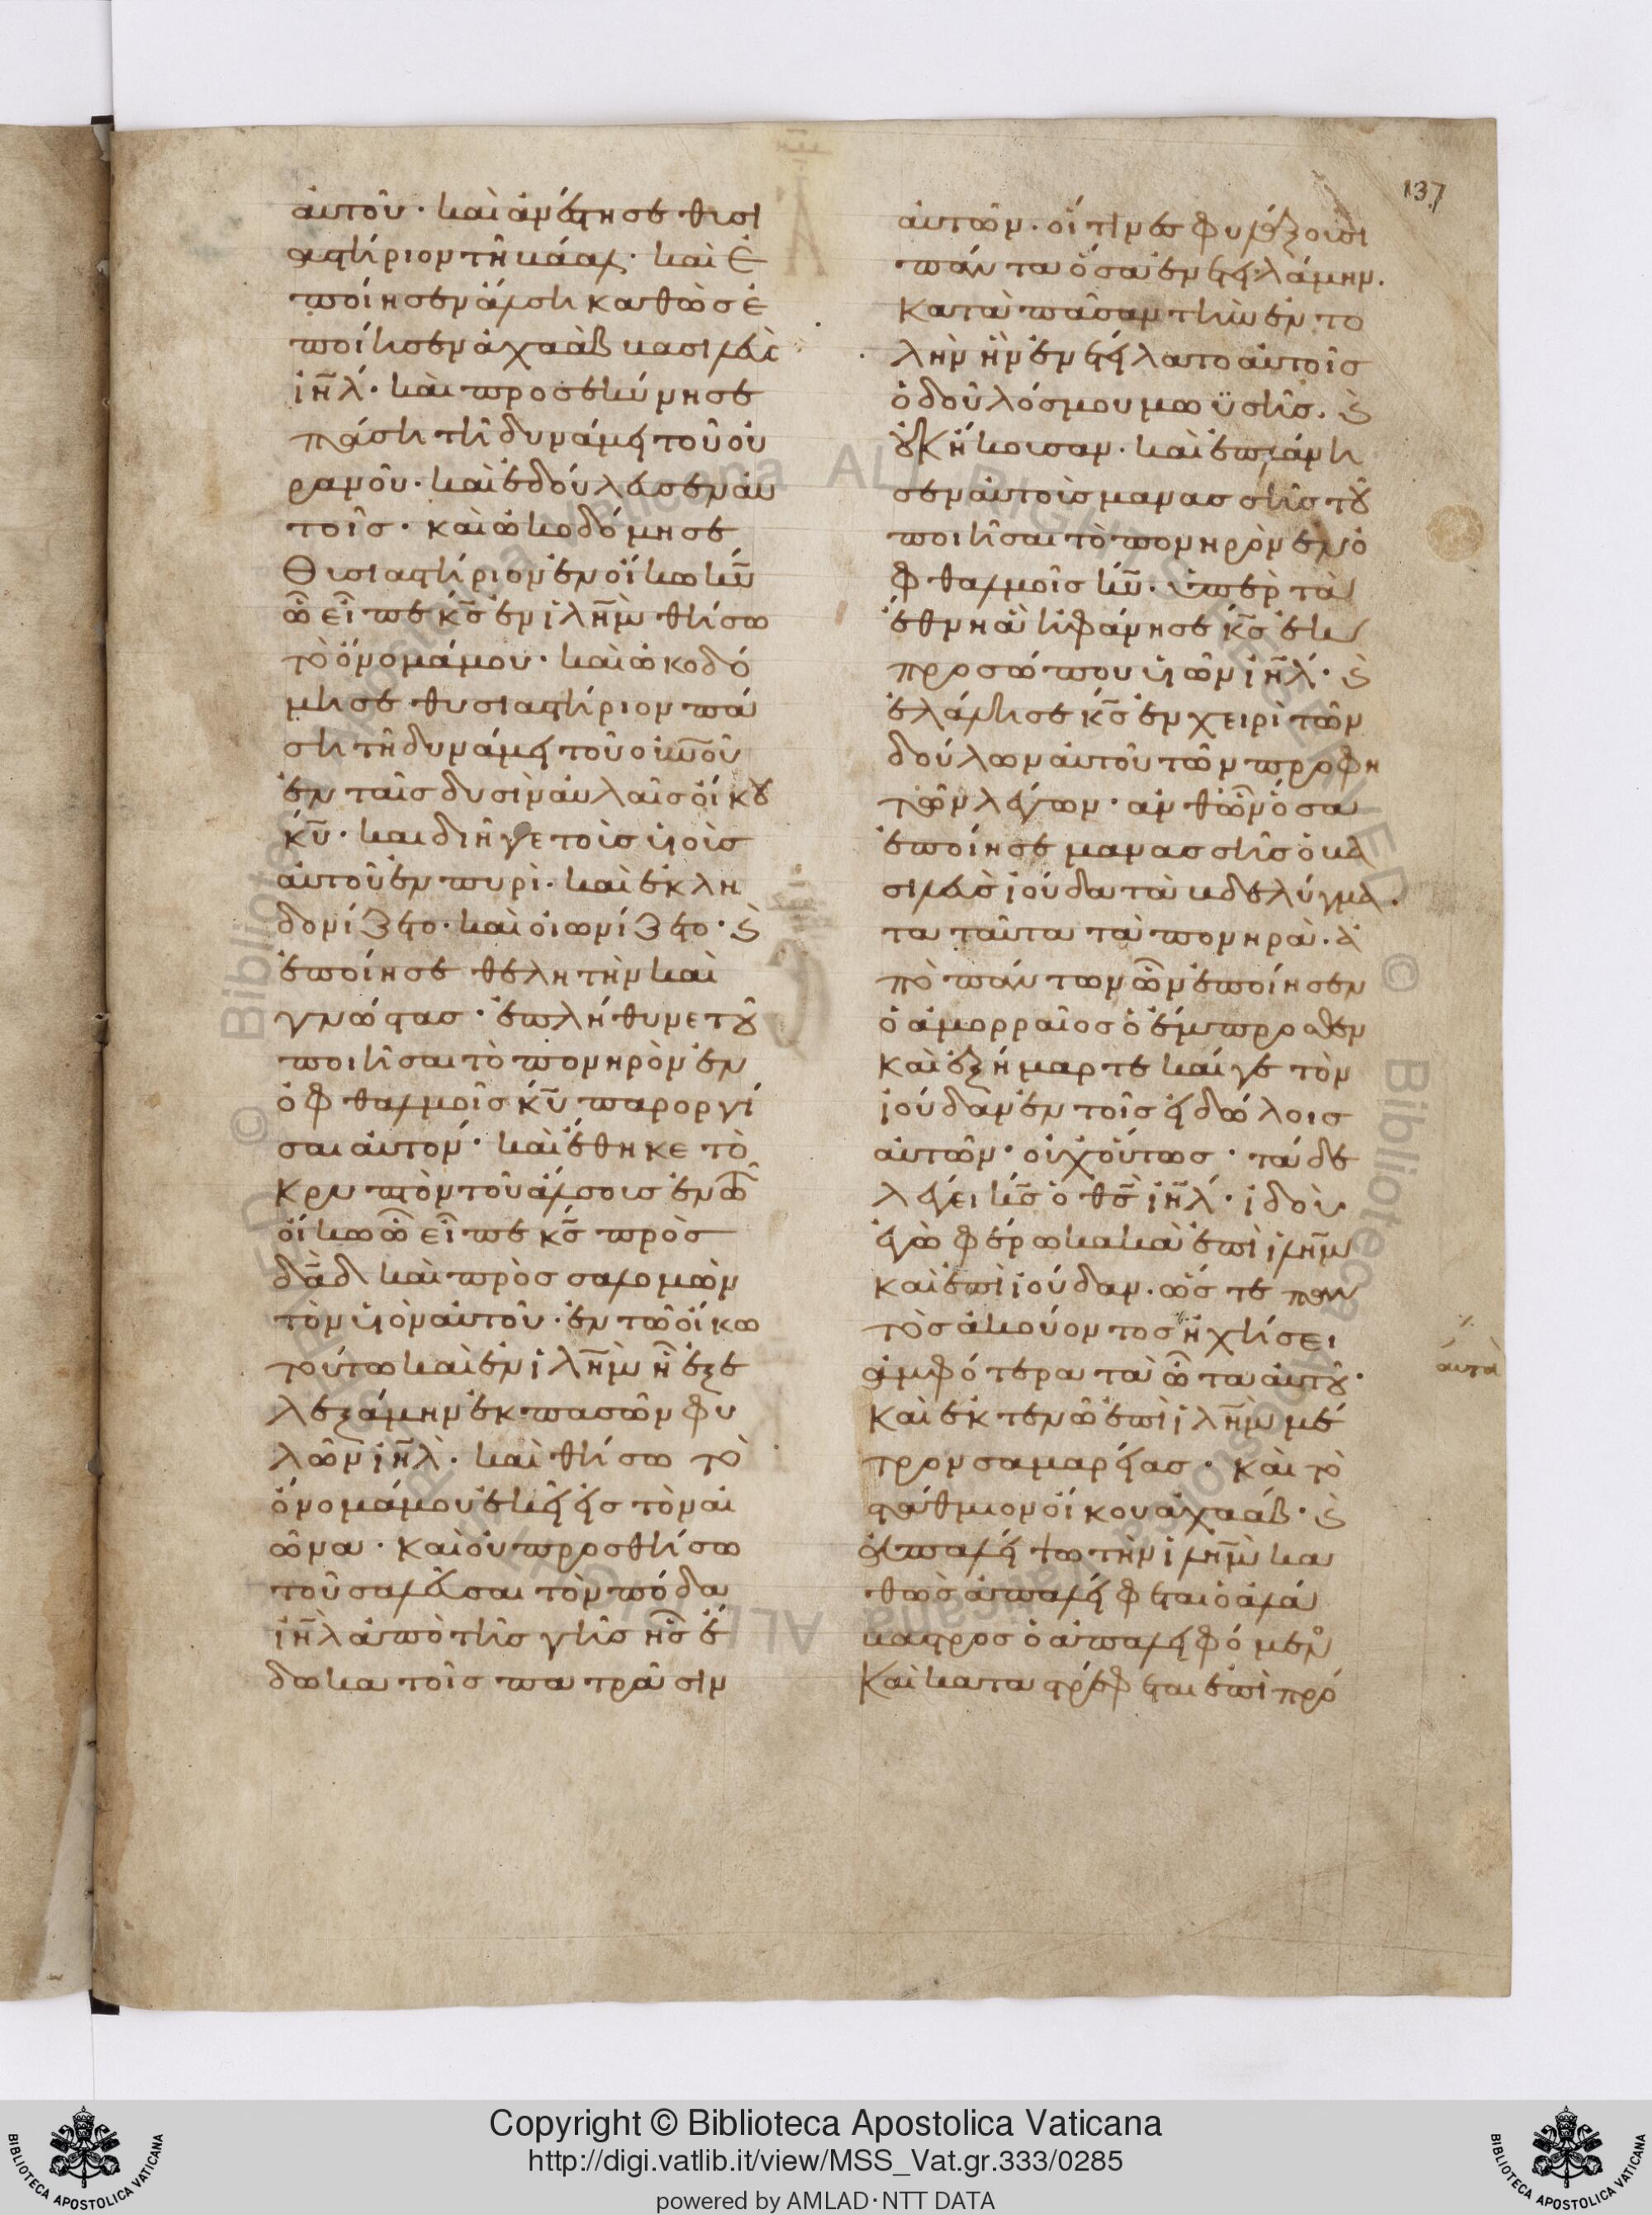 137
αὐτοῦ· καὶ ἀνέστησε θυσι
αστήριον τῆ βάαλ· καὶ ἐ
ποίησεν ἄλση καθὼς ἐ
ποίησεν ἀχαὰβ βασιλεὺς
ἰη̅λ· καὶ προσεκύνησε
πάση τῆ δυνάμει τοῦ οὐ
ρανοῦ· καὶ ἐδούλευσεν αὐ
τοῖς· καὶ ὠκοδόμησε
θυσιαστήριον ἐν οἴκω κυ̅
ὧ εἶπε κς̅ ἐν ἰλη̅μ θήσω
τὸ ὄνομά μου· καὶ ὠκοδό
μησε θυσιαστήριον πά
ση τῆ δυνάμει τοῦ οὐνο̅ῦ
ἐν ταῖς δυσὶν αὐλαῖς οἴκου
κυ̅· καὶ διῆγε τοὺς υἱοὺς
αὐτοῦ ἐν πυρὶ· καὶ ἐκλη
δονίζετο· καὶ οἰωνίζετο· καὶ
ἐποίησε θελητὴν καὶ
γνώστας· ἐπλήθυνε τοῦ
ποιῆσαι τὸ πονηρὸν ἐν
ὀφθαλμοῖς κυ̅ παροργί
σαι αὐτόν· καὶ ἔθηκε τὸ
κρυπτὸν τοῦ ἄλσους ἐν τῶ
οἴκω ὧ εἶπε κς̅ πρὸς
δα̅δ καὶ πρὸς σαλομὼν
τὸν υἱὸν αὐτοῦ· ἐν τῶ οἴκω
τούτω καὶ ἐν ἰλη̅μ ἧ ἐξε
λεξάμην ἐκ πασῶν φυ
λῶν ἰη̅λ· καὶ θήσω τὸ
ὄνομά μου ἐκεῖ εἰς τὸν αἰ
ῶνα· καὶ οὐ προσθήσω
τοῦ σαλεῦσαι τὸν πόδα
ἰη̅λ ἀπὸ τῆς γῆς ἧς ἔ
δωκα τοῖς πατράσιν
αὐτῶν· οἵτινες φυλάξουσι
πάντα ὅσα ἐνετειλάμην·
κατὰ πᾶσαν τὴν ἐντο
λὴν ἣν ἐνετείλατο αὐτοῖς
ὁ δοῦλός μου μωϋσῆς· καὶ
οὐκ ἤκουσαν· καὶ ἐπλάνη
σεν αὐτοὺς μανασσῆς τοῦ
ποιῆσαι τὸ πονηρὸν ἐν ὀ
φθαλμοῖς κυ̅· ὑπὲρ τὰ
ἔθνη ἃ ἠφάνησε κς̅ ἐκ
προσώπου υἱῶν ἰη̅λ· καὶ
ἐλάλησε κς̅ ἐν χειρὶ τῶν
δούλων αὐτοῦ τῶν προφη
τῶν λέγων· ἀνθ ὧν ὅσα
ἐποίησε μανασσῆς ὁ βα
σιλεὺς ἰούδα τὰ βδελύγμα
τα ταῦτα τὰ πονηρὰ· ἀ
πὸ πάντων ὧν ἐποίησεν
ὁ ἀμορραῖος ὁ ἔμπροσθεν
καὶ ἐξήμαρτε καίγε τὸν
ἰούδαν ἐν τοῖς εἰδώλοις
αὐτῶν· οὐχ οὕτως· τάδε
λέγει κς̅ ὁ θς̅ ἰη̅λ· ἰδοὺ
ἐγὼ φέρω κακὰ ἐπὶ ἰλη̅μ
καὶ ἐπὶ ἰούδαν· ὥστε παν
τὸς ἀκούοντος ἠχήσει
ἀμφότερα τὰ ὦτα αὐτοῦ·
αὐτὰ
καὶ ἐκτενῶ ἐπὶ ἰλη̅μ μέ
τρον σαμαρείας· καὶ τὸ
στάθμιον οἴκου ἀχαάβ· καὶ
ἀπαλείψω τὴν ἰλη̅μ κα
θὼς ἀπαλείφεται ὁ ἀλά
βαστρος ὁ ἀπαλειφόμενος
καὶ καταστρέφεται ἐπὶ πρό
Copyright © Biblioteca Apostolica Vaticana
http://digi.vatlib.it/view/MSS_Vat.gr.333/0285
powered by AMLAD·NTT DATA